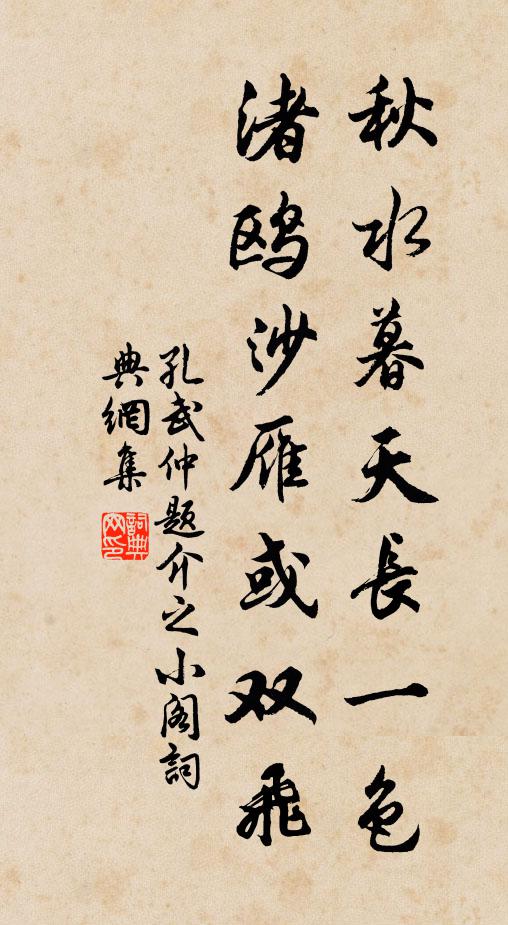 秋水暮天長一色
渚鸥沙雁或双飛
孔武仲题介之小阁詞
典網集
詞典網印